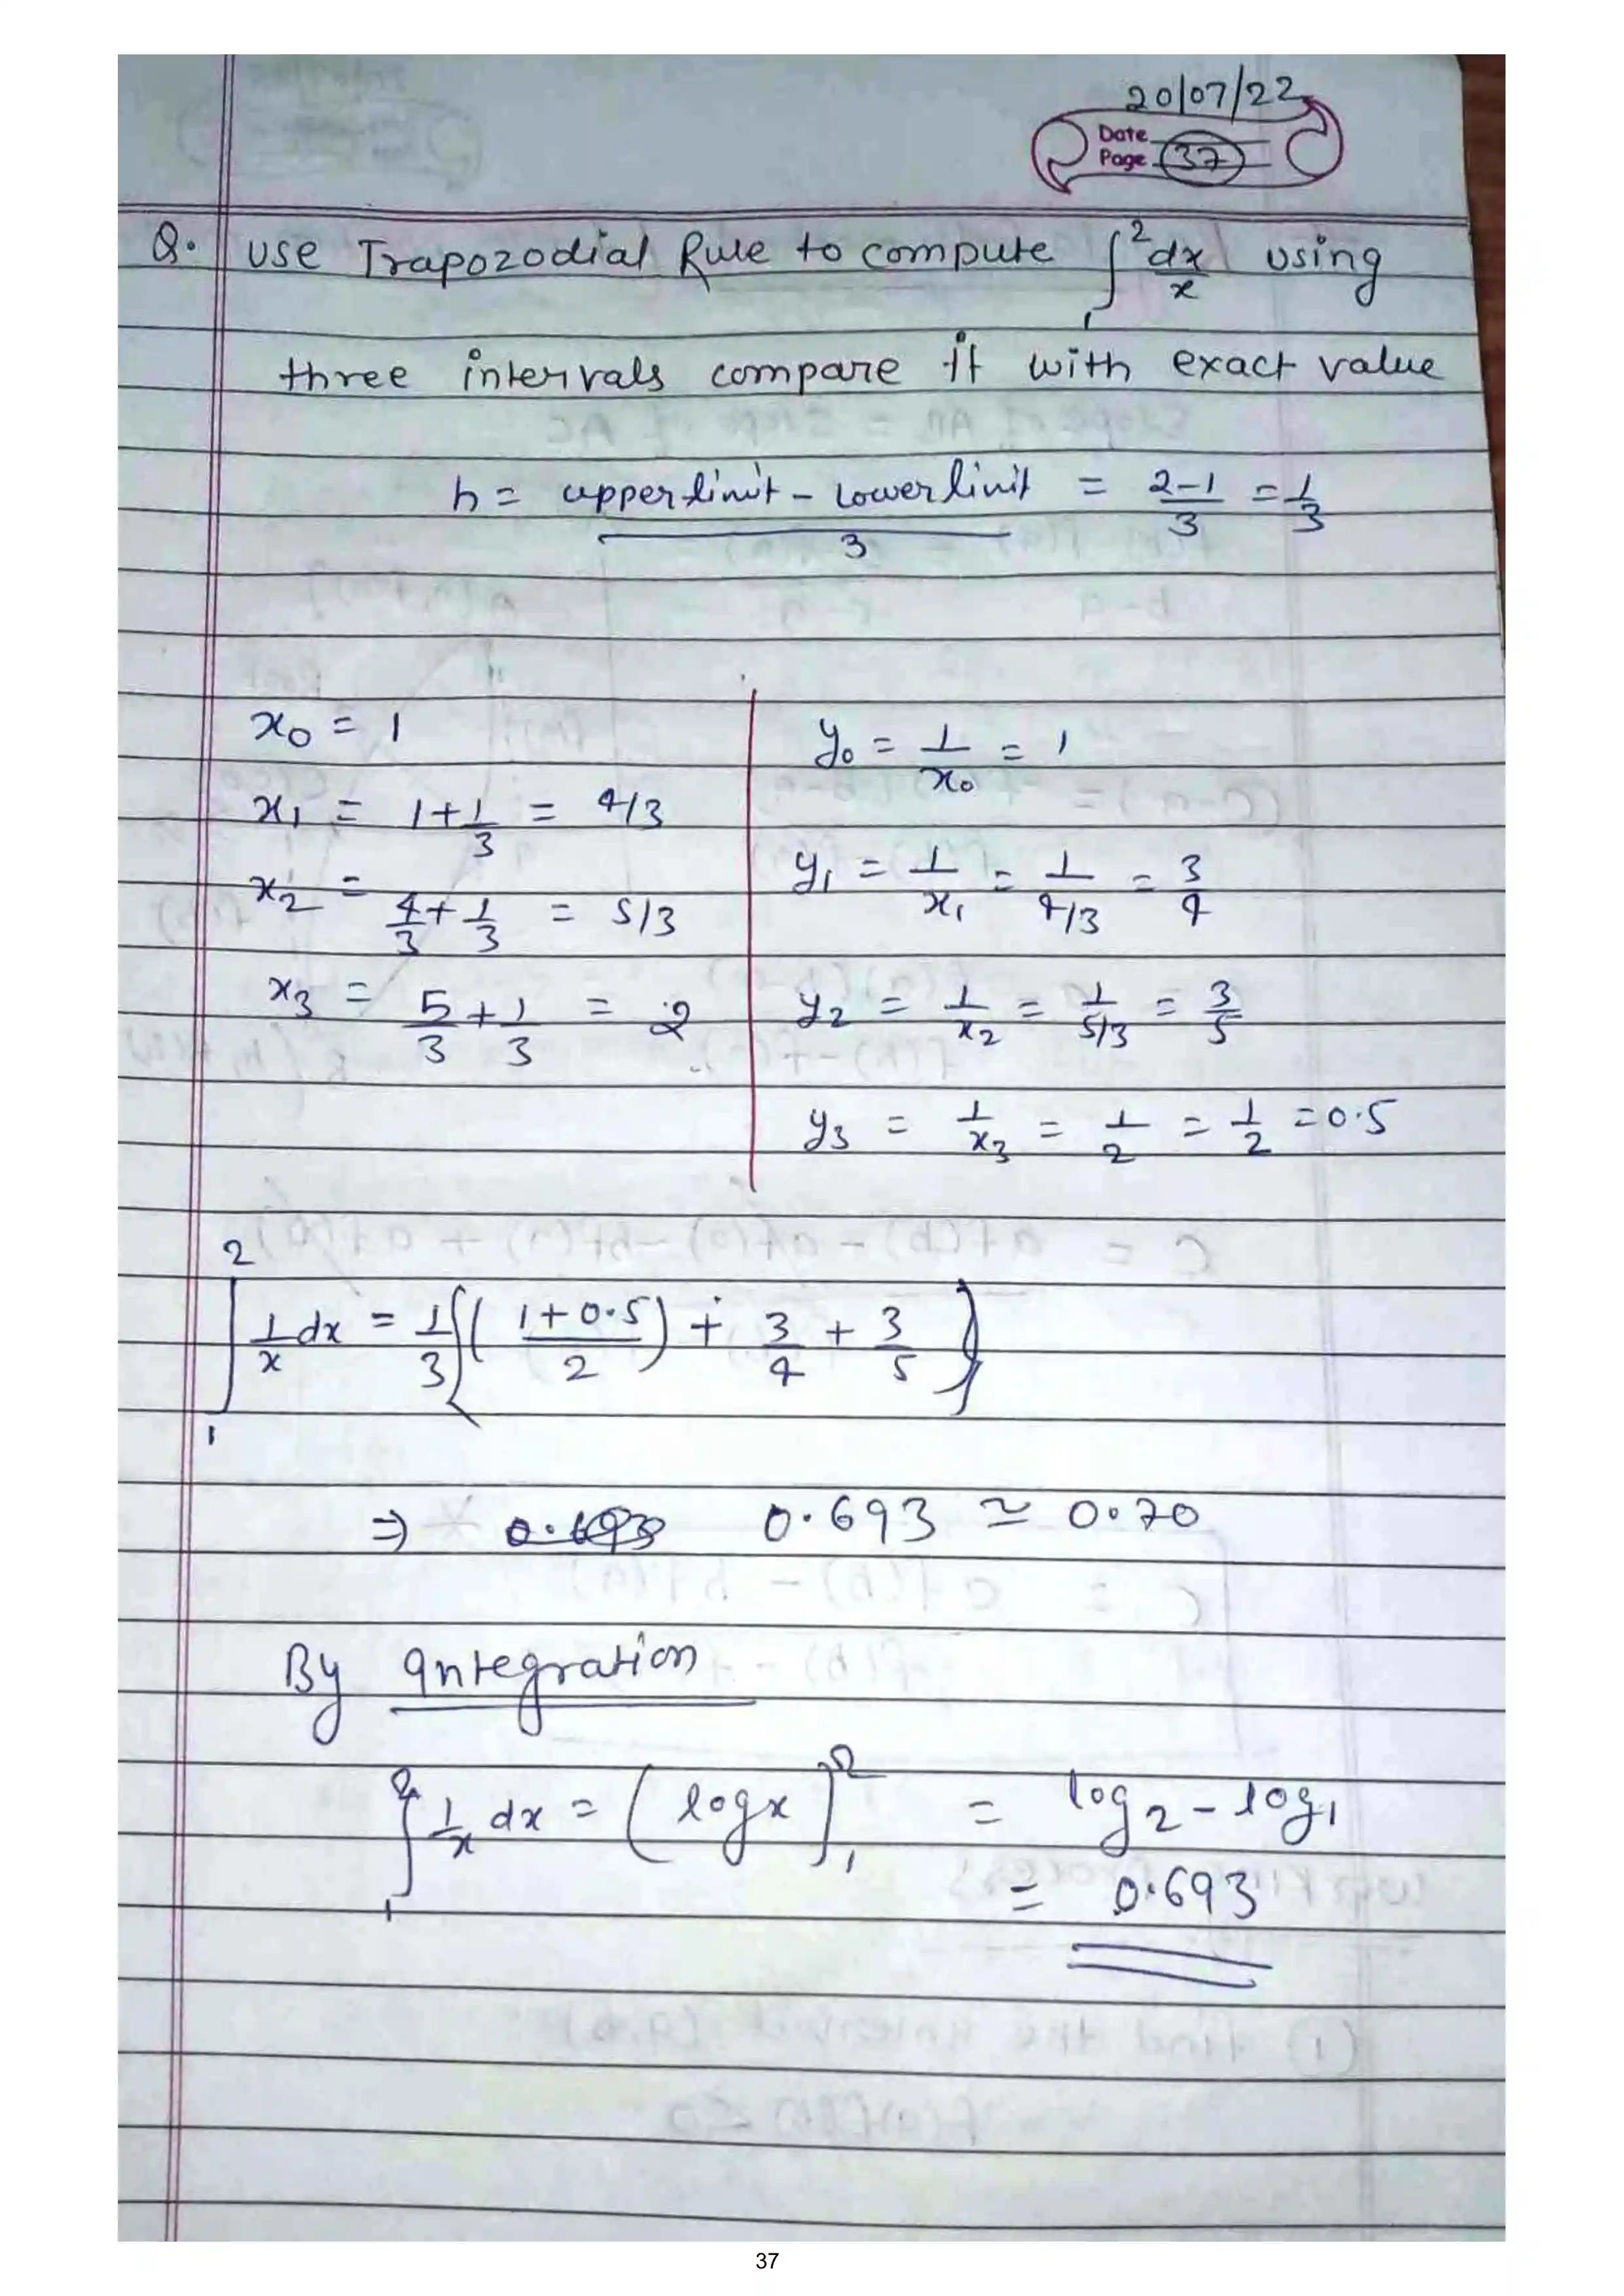 20/07/22
Date
Page 37
Q. Use Trapozodial Rule to compute ∫₁² dx/x using
three intervals compare it with exact value
h = upper limit - lower limit / 3 = 2-1/3 = 1/3
x₀ = 1
x₁ = 1 + 1/3 = 4/3
x₂ = 4/3 + 1/3 = 5/3
x₃ = 5/3 + 1/3 = 2
y₀ = 1/x₀ = 1
y₁ = 1/x₁ = 1/4/3 = 3/4
y₂ = 1/x₂ = 1/5/3 = 3/5
y₃ = 1/x₃ = 1/2 = 1/2 = 0.5
∫₁² 1/x dx = 1/3 {(1+0.5/2) + 3/4 + 3/5}
⇒ 0.693 ≃ 0.70
By Integration
∫₁² 1/x dx = (log x]₁² = log 2 - log 1
= 0.693
37